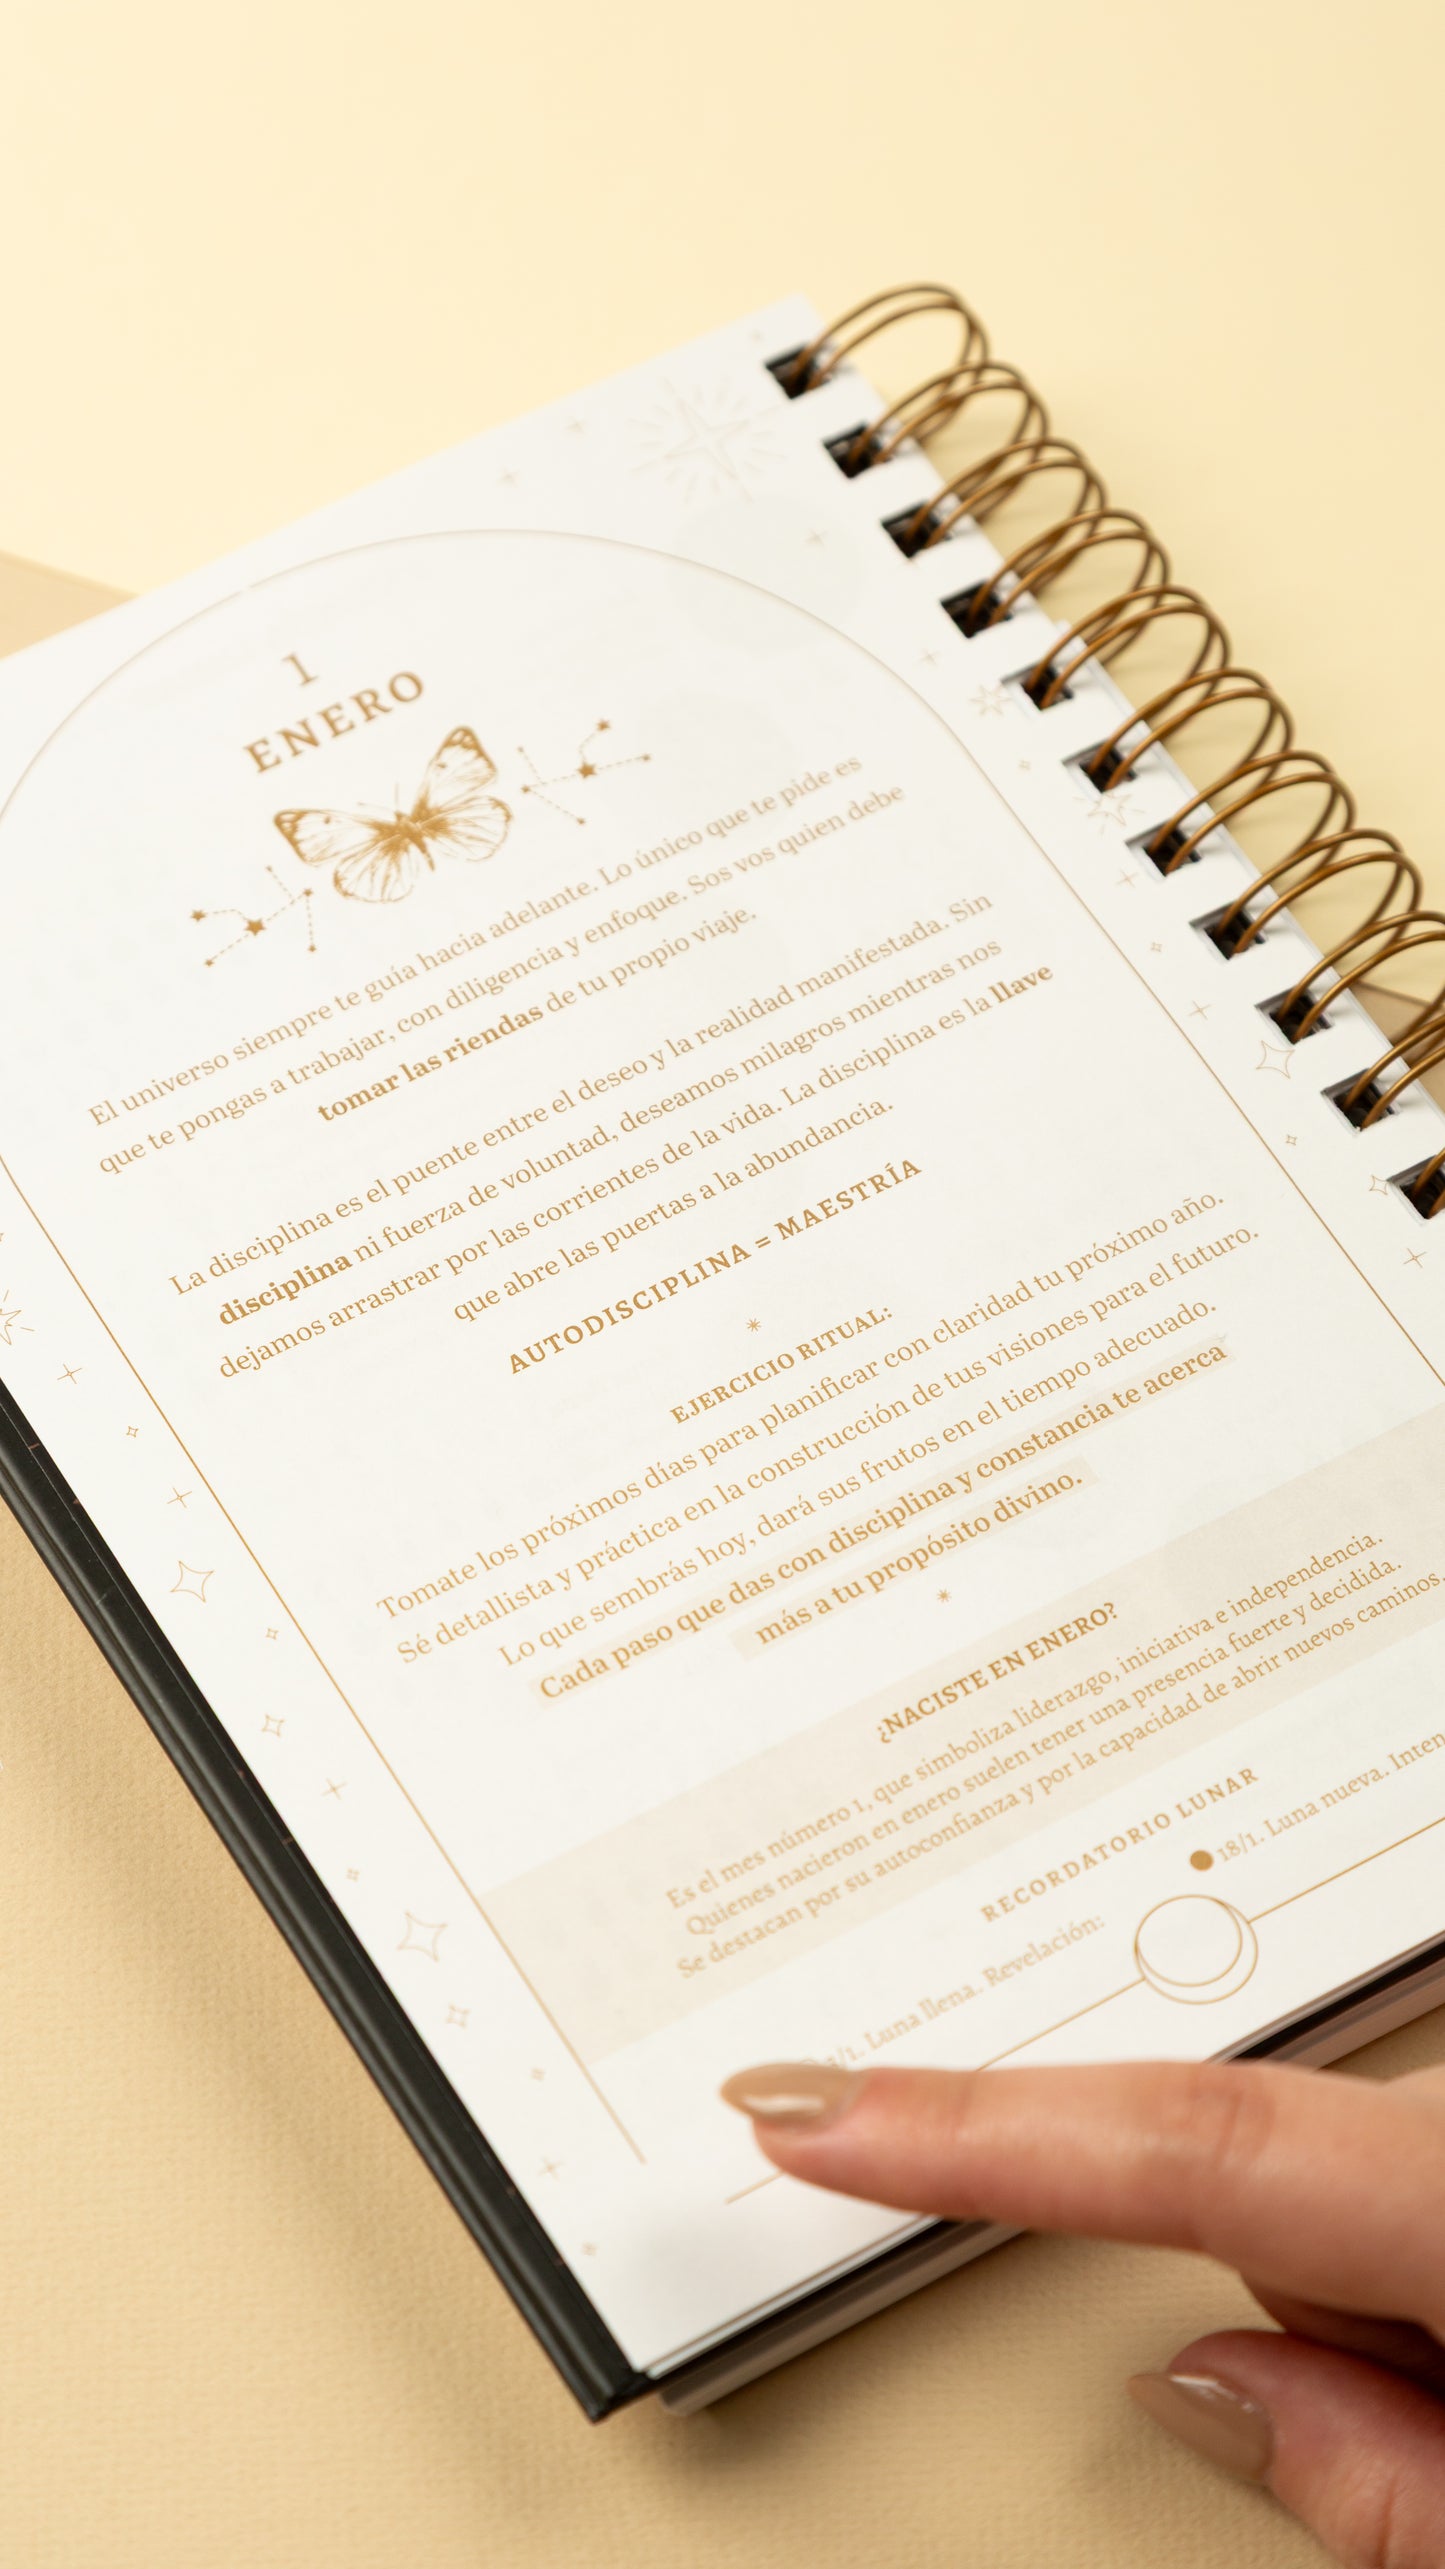 1
ENERO
El universo siempre te guía hacia adelante. Lo único que te pide es
que te pongas a trabajar, con diligencia y enfoque. Sos vos quien debe
tomar las riendas de tu propio viaje.
La disciplina es el puente entre el deseo y la realidad manifestada. Sin
disciplina ni fuerza de voluntad, deseamos milagros mientras nos
dejamos arrastrar por las corrientes de la vida. La disciplina es la llave
que abre las puertas a la abundancia.
AUTODISCIPLINA = MAESTRÍA
EJERCICIO RITUAL:
Tomate los próximos días para planificar con claridad tu próximo año.
Sé detallista y práctica en la construcción de tus visiones para el futuro.
Lo que sembrás hoy, dará sus frutos en el tiempo adecuado.
Cada paso que das con disciplina y constancia te acerca
más a tu propósito divino.
¿NACISTE EN ENERO?
Es el mes número 1, que simboliza liderazgo, iniciativa e independencia.
Quienes nacieron en enero suelen tener una presencia fuerte y decidida.
Se destacan por su autoconfianza y por la capacidad de abrir nuevos caminos.
RECORDATORIO LUNAR
/1. Luna llena. Revelación:
18/1. Luna nueva. Inten